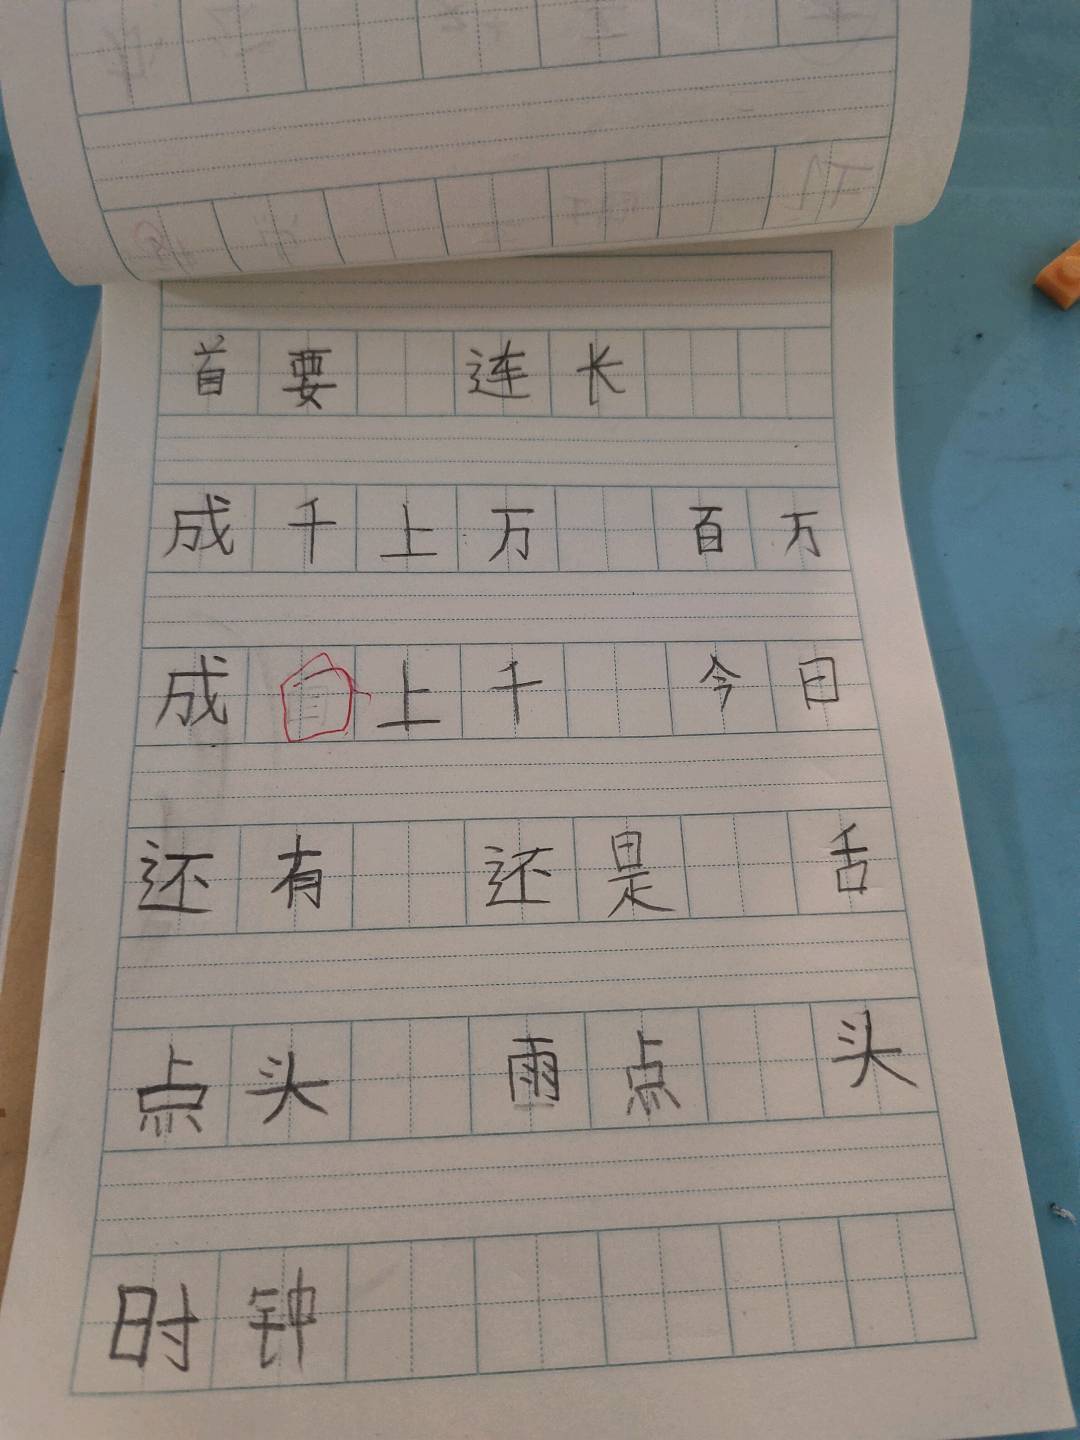 首要 连长
成千上万 百万
成 上千 今日
还有 还是 舌
点头 雨点 头
时钟